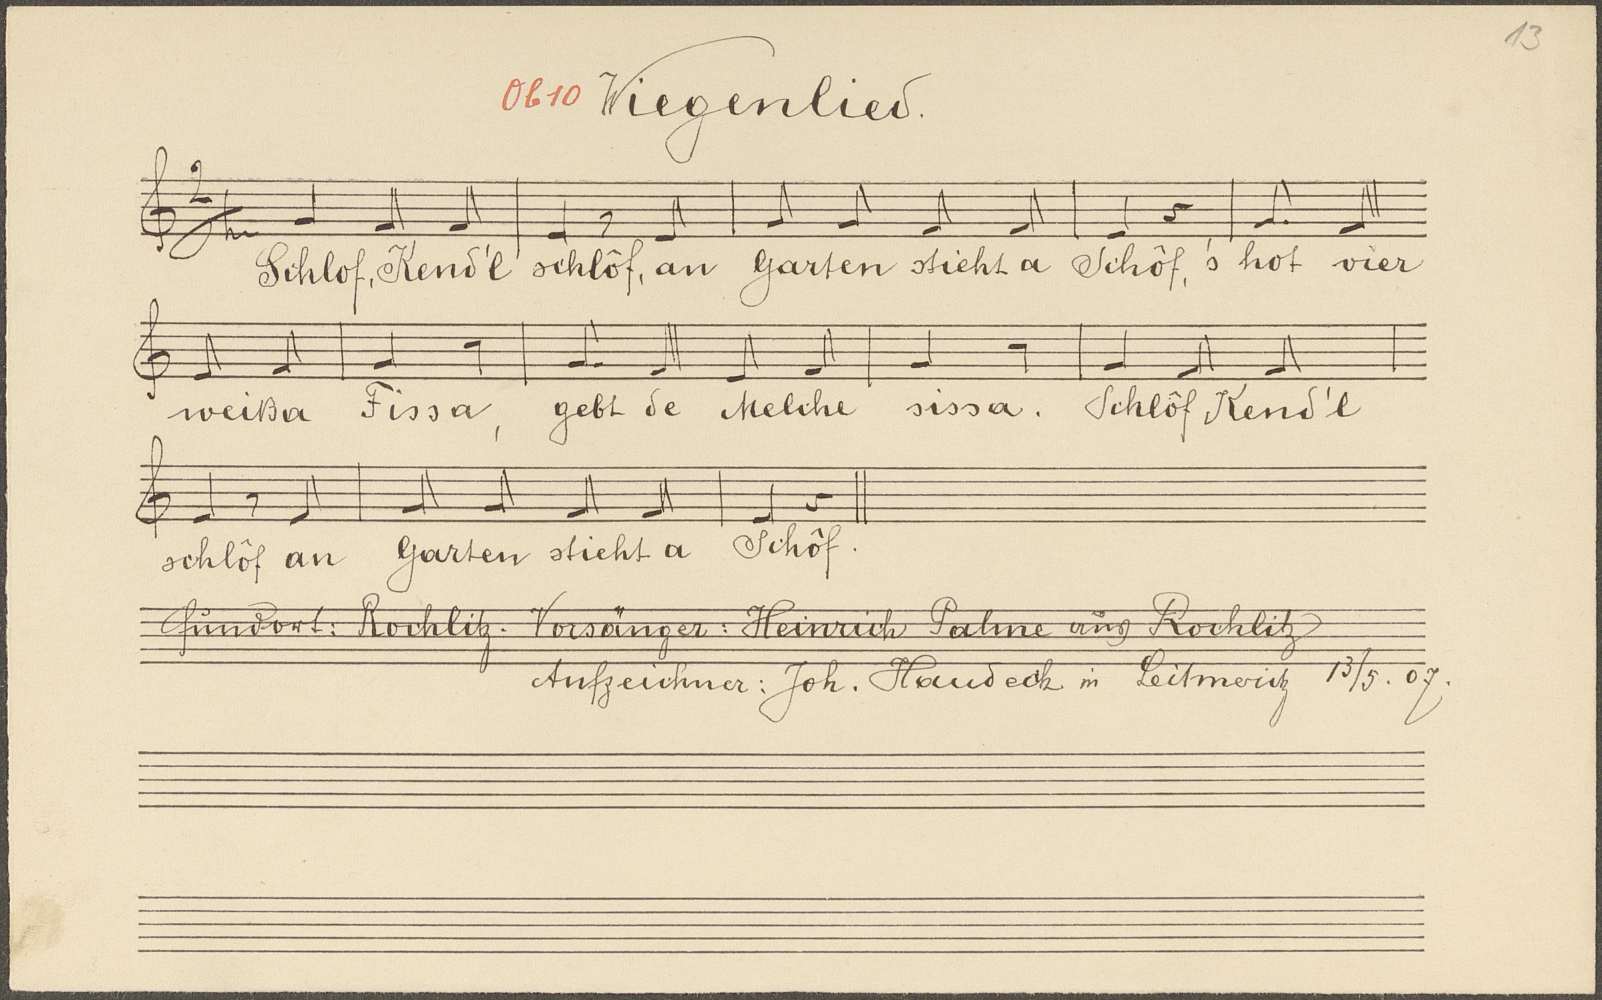 13
Ob10 Wiegenlied.
Schlof, Kend'l schlôf, an Garten stieht a Schôf, 's hot vier
weißa Fissa, gebt de Melche sissa. Schlôf, Kend'l
schlôf an Garten stieht a Schôf.
Fundort: Rochlitz. Vorsänger: Heinrich Palme aus Rochlitz
Aufzeichner: Joh. Haudeck in Leitmeritz 13/5. 07.